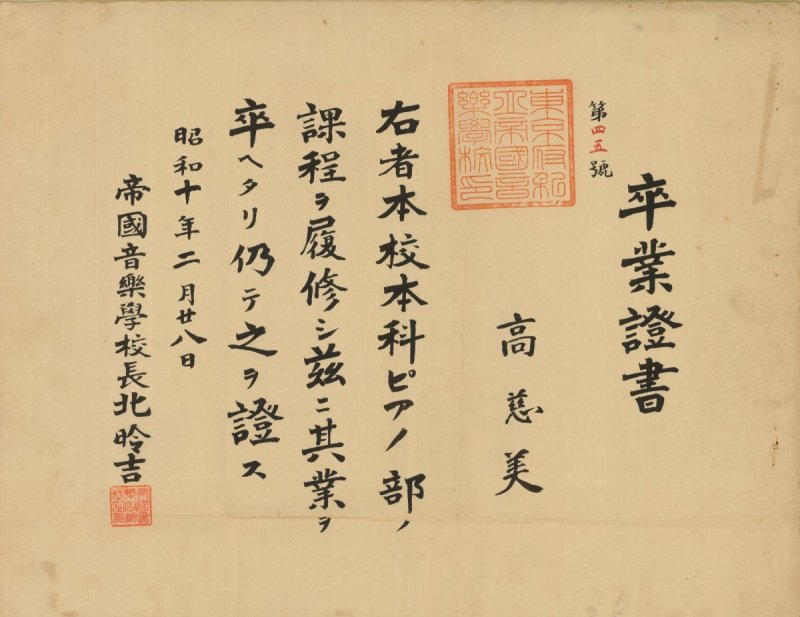 卒業證書
第四五號
東京府私
立帝國音
樂學校印
高慈美
右者本校本科ピアノ部ノ
課程ヲ履修シ茲ニ其業ヲ
卒ヘタリ仍テ之ヲ證ス
昭和十年二月廿八日
帝國音樂學校長北昤吉